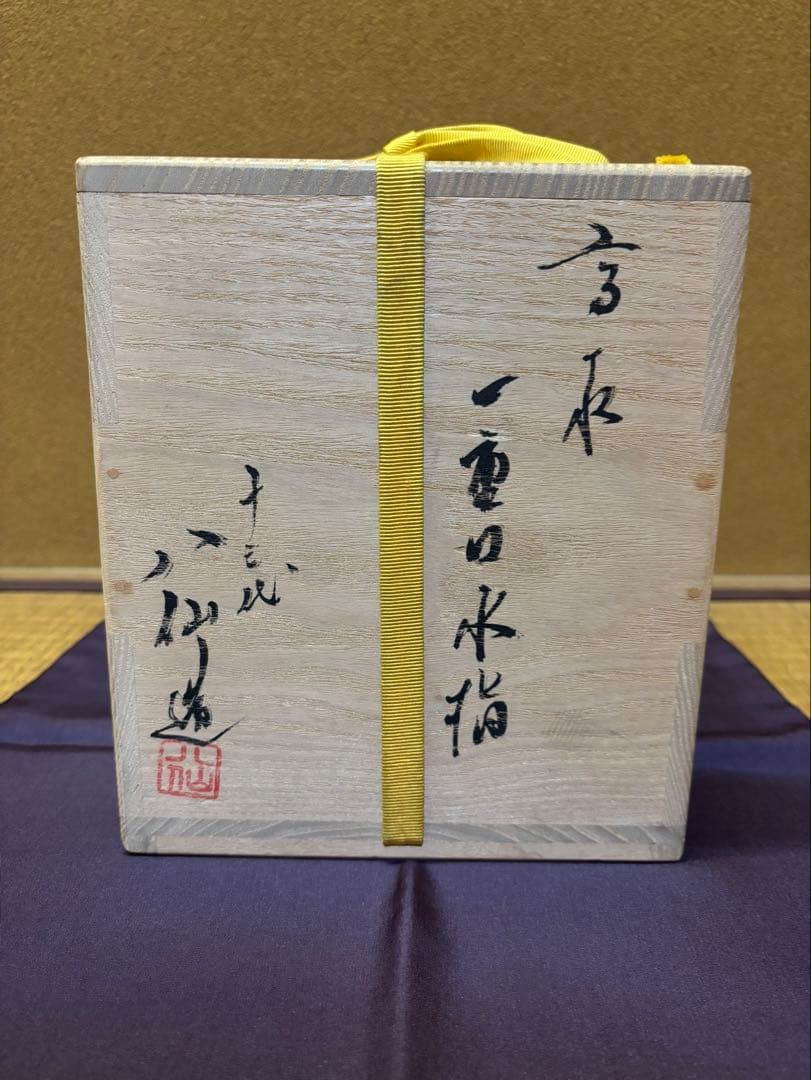 高取
一重口水指
十三代
八仙造
仙